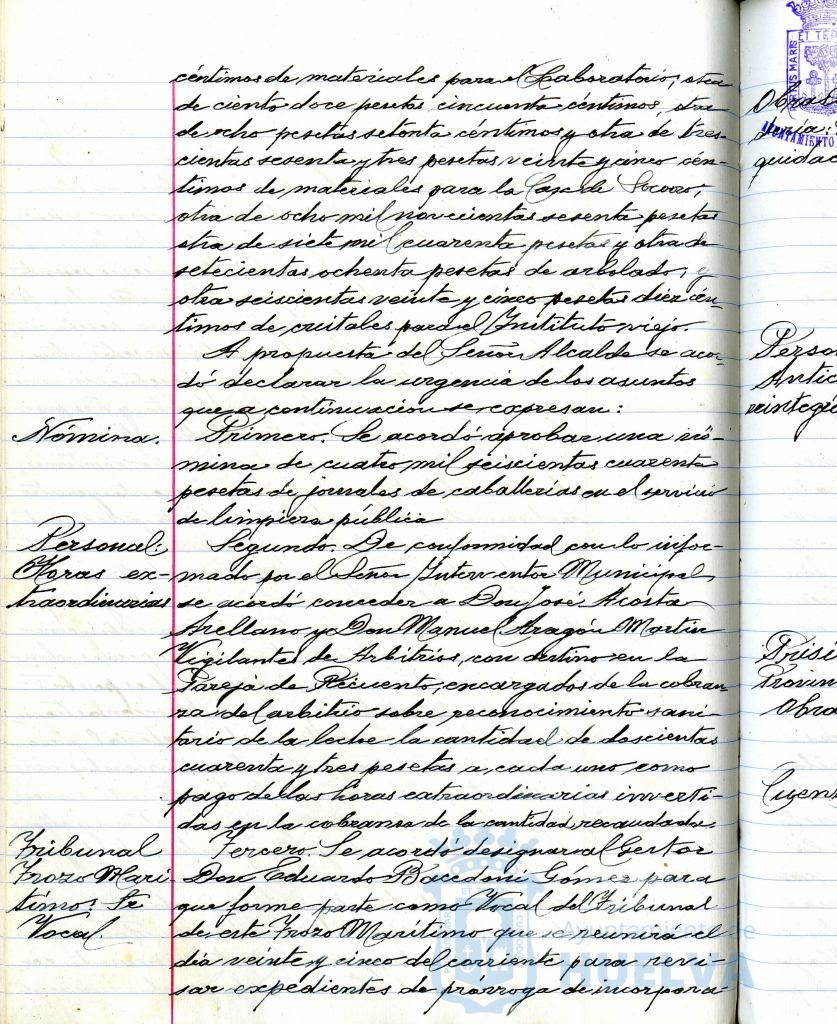 céntimos de materiales para el Laboratorio; otra
de ciento doce pesetas cincuenta céntimos, otra
de ocho pesetas setenta céntimos y otra de tres-
cientas sesenta y tres pesetas veinte y cinco cén-
timos de materiales para la Casa de Socorro;
otra de ocho mil novecientas sesenta pesetas
otra de siete mil cuarenta pesetas y otra de
setecientas ochenta pesetas de arbolado; y
otra seiscientas veinte y cinco pesetas diez cén-
timos de cristales para el Instituto viejo.
A propuesta del Señor Alcalde se acor-
dó declarar la urgencia de los asuntos
que a continuación se expresan:
Nómina.
Primero. Se acordó aprobar una nó-
mina de cuatro mil seiscientas cuarenta
pesetas de jornales de caballerías en el servicio
de limpieza pública
Personal:
Horas ex-
traordinarias
Segundo. De conformidad con lo infor-
mado por el Señor Interventor Municipal,
se acordó conceder a Don José Acosta
Arellano y a Don Manuel Aragón Martín
Vigilantes de Arbitrios, con destino en la
Pareja de Recuento, encargados de la cobran-
za del arbitrio sobre reconocimiento sani-
tario de la leche la cantidad de doscientas
cuarenta y tres pesetas a cada uno como
pago de las horas extraordinarias inverti-
das en la cobranza de la cantidad recaudada.
Tribunal
Trozo Marí-
timo: Sr
Vocal.
Tercero. Se acordó designar al Gestor
Don Eduardo Bacedoni Gómez para
que forme parte como Vocal del Tribunal
de este Trozo Marítimo que se reunirá el
día veinte y cinco del corriente para revi-
sar expedientes de prórroga de incorpora-
Obras
quidac
Person
Antic
reintegr
Prisi
Provin
Obra
Cuen
PORTUS MARIS ET TER
AYUNTAMIENTO
Ayuntamiento de
HUELVA